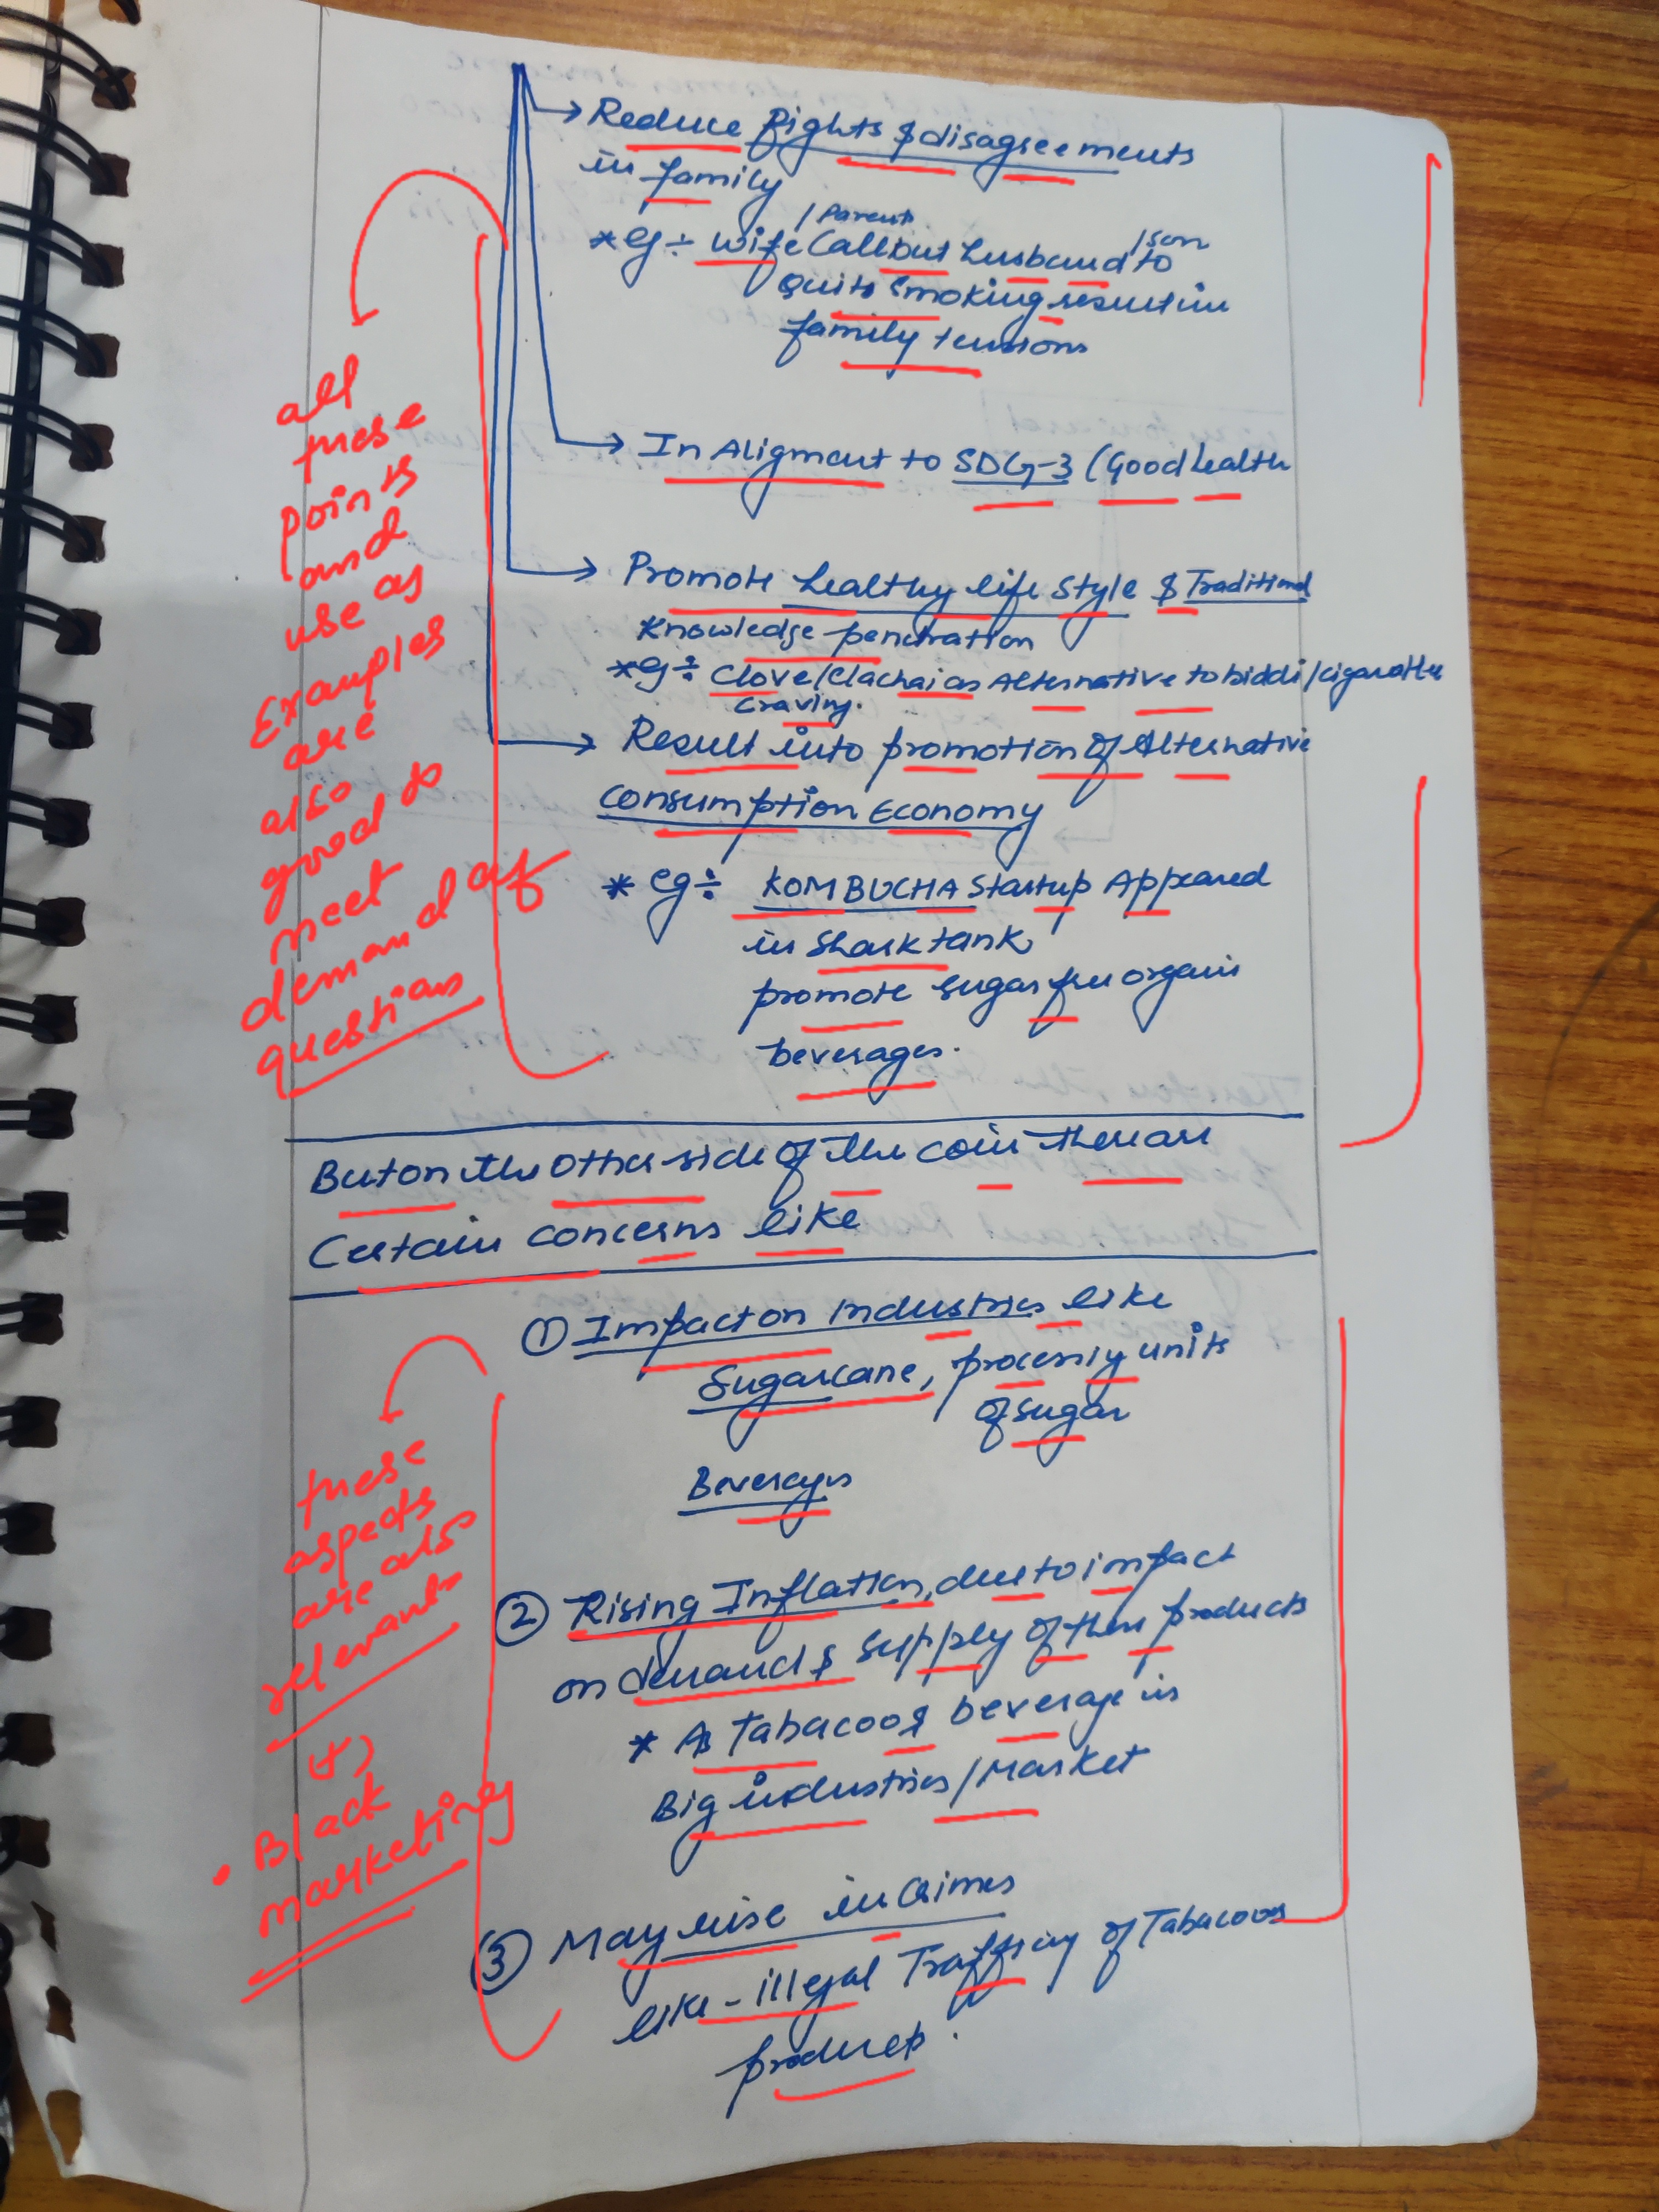 → Reduce fights & disagreements
in family
/Parents
/son
* eg÷ wife Callout husband to
quits smoking result in
family tensions
→ In Aligment to SDG-3 (Good health
→ Promote healthy life style & Traditional
Knowledge penetration
* eg÷ Clove/Elachai as Alternative to biddi/cigarattee
craving.
→ Result into promotion of Alternative
Consumption Economy
* eg÷ KOMBUCHA Startup Appeared
in Shark tank
promote sugar free organic
beverages.
all
these
points
and
use as
Examples
are
also
good to
meet
demand of
question
But on the other side of the coin there are
Certain concerns like
① Impact on Industries like
Sugarcane, processing units
of sugar
Beverages
② Rising Inflation, due to impact
on demand & supply of these products
* As Tabacoo & beverage is
Big industries/Market
③ May rise in Crimes
like - illegal Trafficing of Tabacoos
products.
these
aspects
are also
relevant
(+)
• Black
marketing